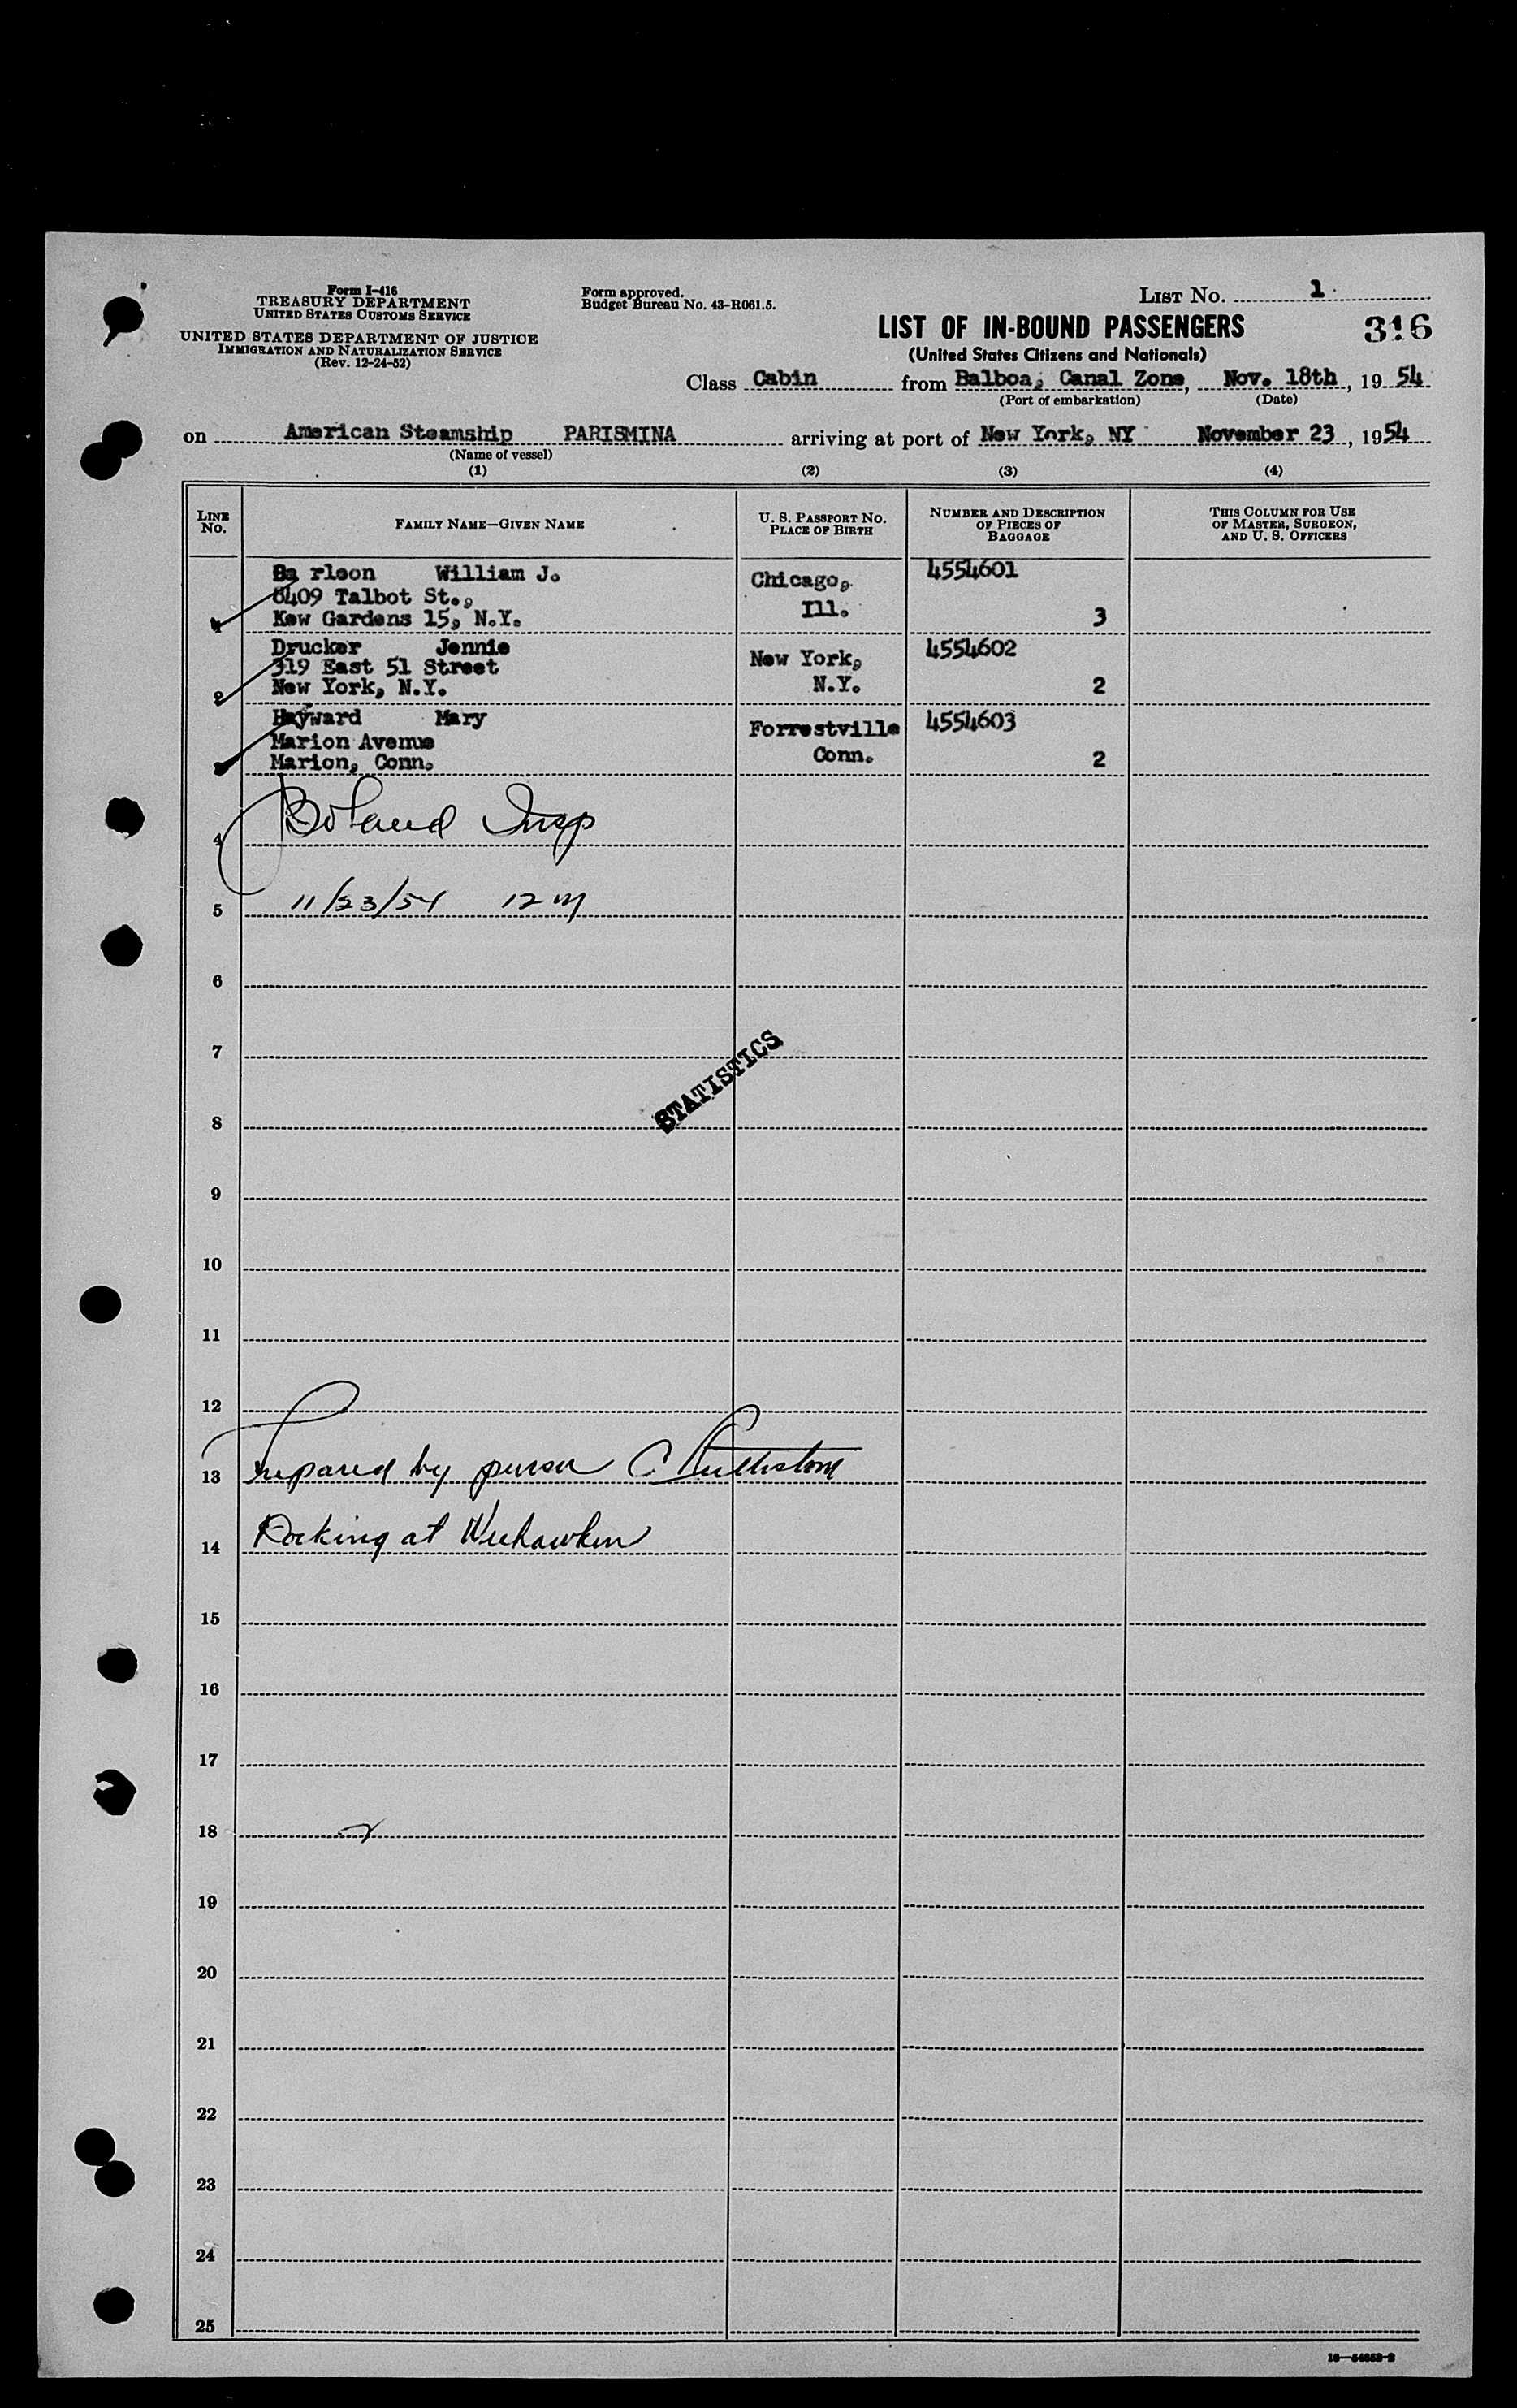 Form I-416
TREASURY DEPARTMENT
UNITED STATES CUSTOMS SERVICE
UNITED STATES DEPARTMENT OF JUSTICE
IMMIGRATION AND NATURALIZATION SERVICE
(Rev. 12-24-52)
Form approved.
Budget Bureau No. 43-R061.5.
LIST No. 1
LIST OF IN-BOUND PASSENGERS 316
(United States Citizens and Nationals)
Class Cabin from Balboa, Canal Zone, Nov. 18th, 1954
(Port of embarkation) (Date)
on American Steamship PARISMINA arriving at port of New York, NY November 23, 1954
(Name of vessel)
(1) (2) (3) (4)
LINE No. FAMILY NAME—GIVEN NAME U. S. PASSPORT NO. PLACE OF BIRTH NUMBER AND DESCRIPTION OF PIECES OF BAGGAGE THIS COLUMN FOR USE OF MASTER, SURGEON, AND U. S. OFFICERS
William J. Chicago, 4554601
8409 Talbot St., Ill.
1 Kew Gardens 15, N.Y. 3
Drucker Jennie New York, 4554602
319 East 51 Street N.Y.
2 New York, N.Y. 2
Hayward Mary Forrestville 4554603
Marion Avenue Conn.
3 Marion, Conn. 2
4 Boland Insp
5 11/23/54 12 M
6
7
STATISTICS
8
9
10
11
12
13 Prepared by purser C
14 Docking at Weehawken
15
16
17
18
19
20
21
22
23
24
25